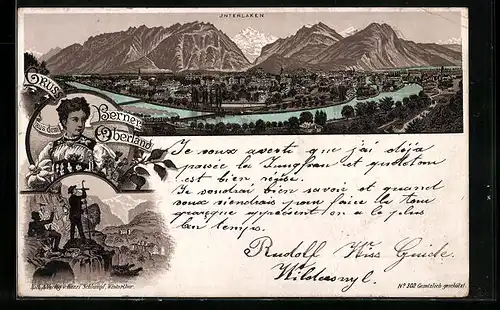 INTERLAKEN
GRUSS
aus dem
Berner
Oberland
Je vous averti que j'ai déja
passée la Jungfrau et que
est bien réjise.
Je voudrai bien savoir et quand
vous viendrais pour faire la tour
présent on a le plus
bon temps.
Rudolf Wiss Guide.
Wilderswyl.
Schlumpf, Winterthur.
No 102 Gesetzlich geschützt.